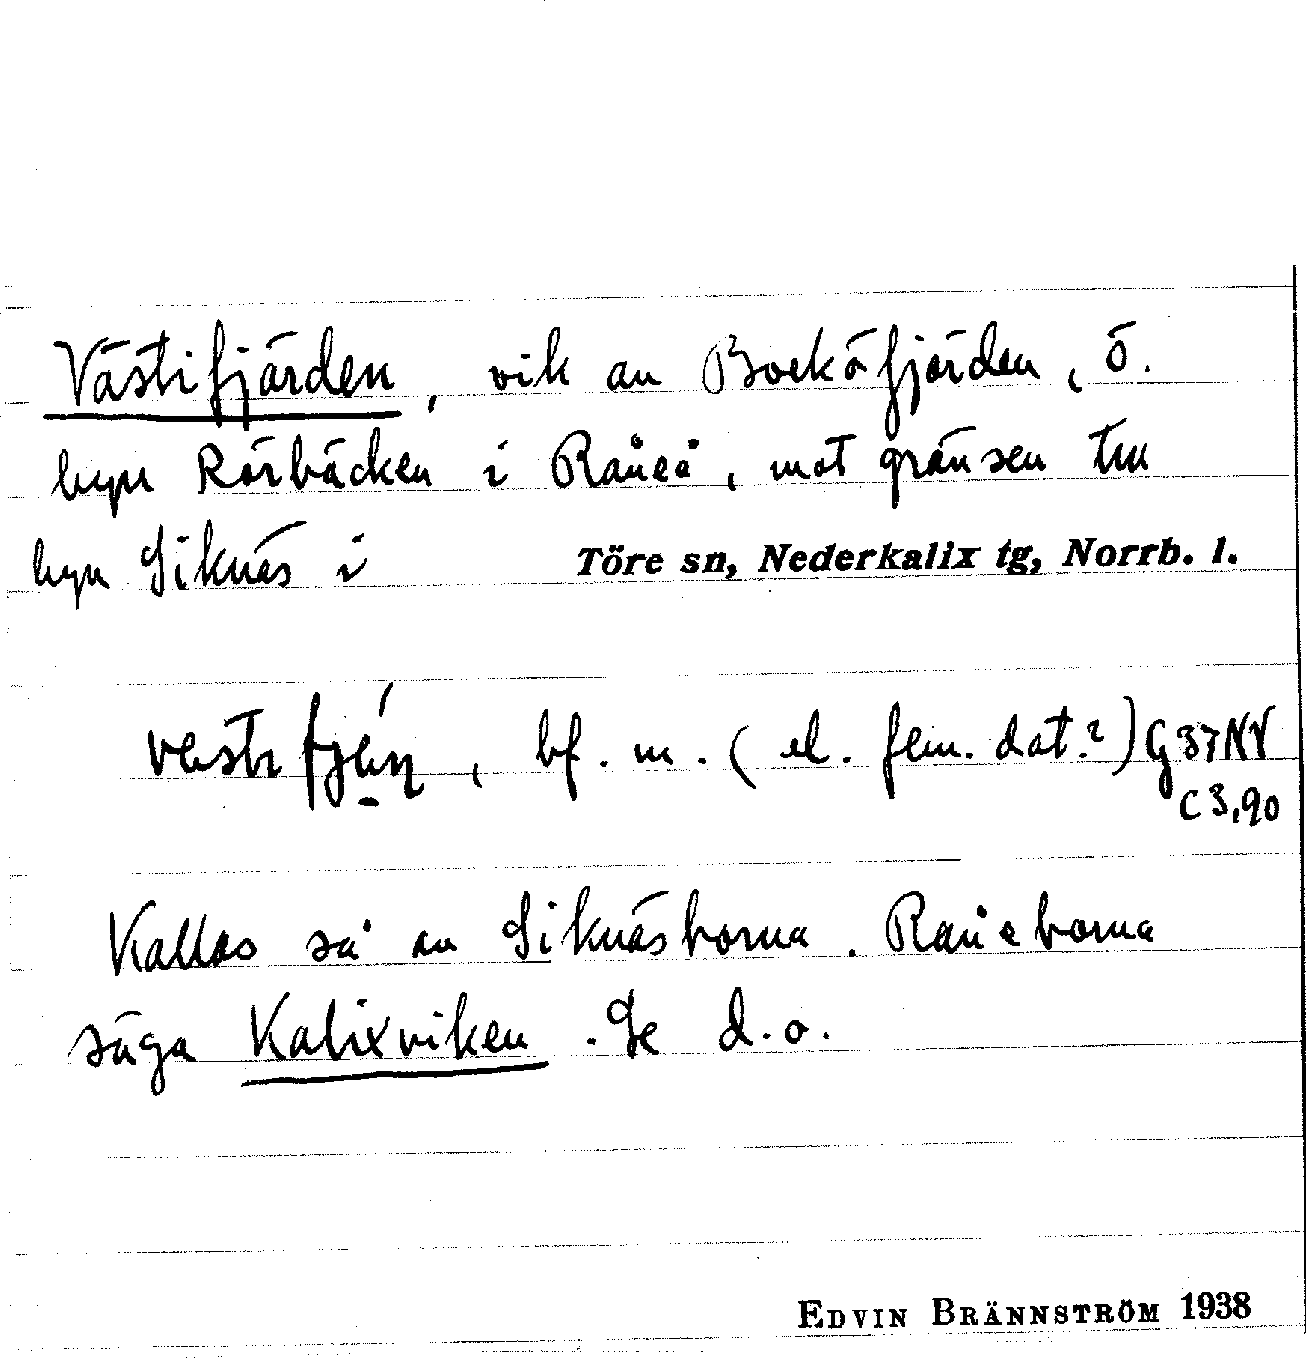 Västifjärden, vik av Bocköfjärden, ö.
byn Rörbäcken i Råneå, mot gränsen till
byn Siknäs i Töre sn, Nederkalix tg, Norrb. l.
bf. m. (el. fem. dat.?) G 37 NV
C 3,90
Kallas så av Siknäsborna. Råneborna
säga Kalixviken. Se d.o.
EDVIN BRÄNNSTRÖM 1938